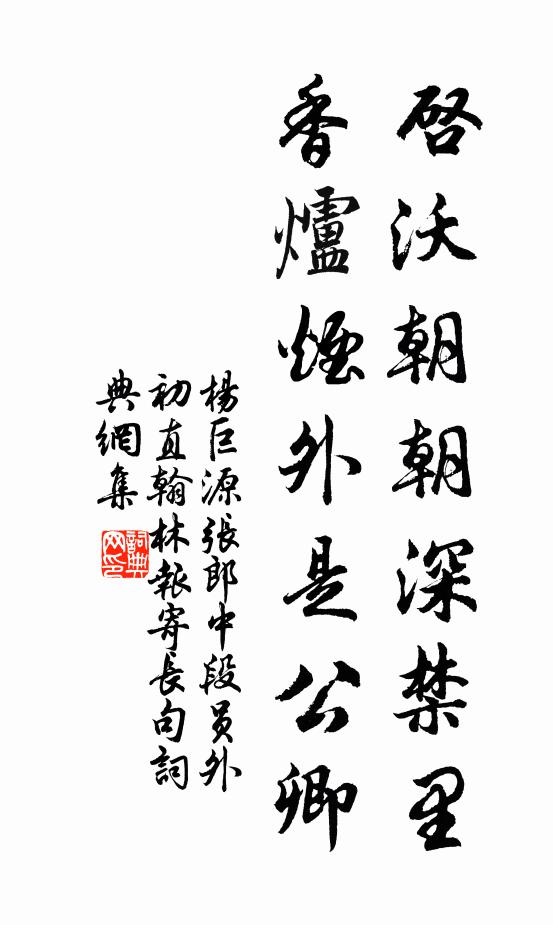 啓沃朝朝深禁里
香爐煙外是公卿
楊巨源張郎中段員外
初直翰林報寄長句詞
典網集
詞典
网印